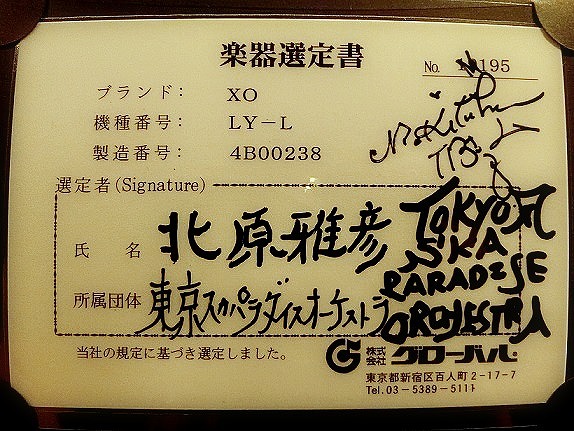 楽器選定書
No. 195
ブランド： XO
機種番号： LY－L
製造番号： 4B00238
選定者(Signature)
氏 名 北原雅彦
所属団体 東京スカパラダイスオーケストラ
TOKYO
SKA
PARADISE
ORCHESTRA
当社の規定に基づき選定しました。
株式会社 グローバル
東京都新宿区百人町2-17-7
Tel.03－5389－5111